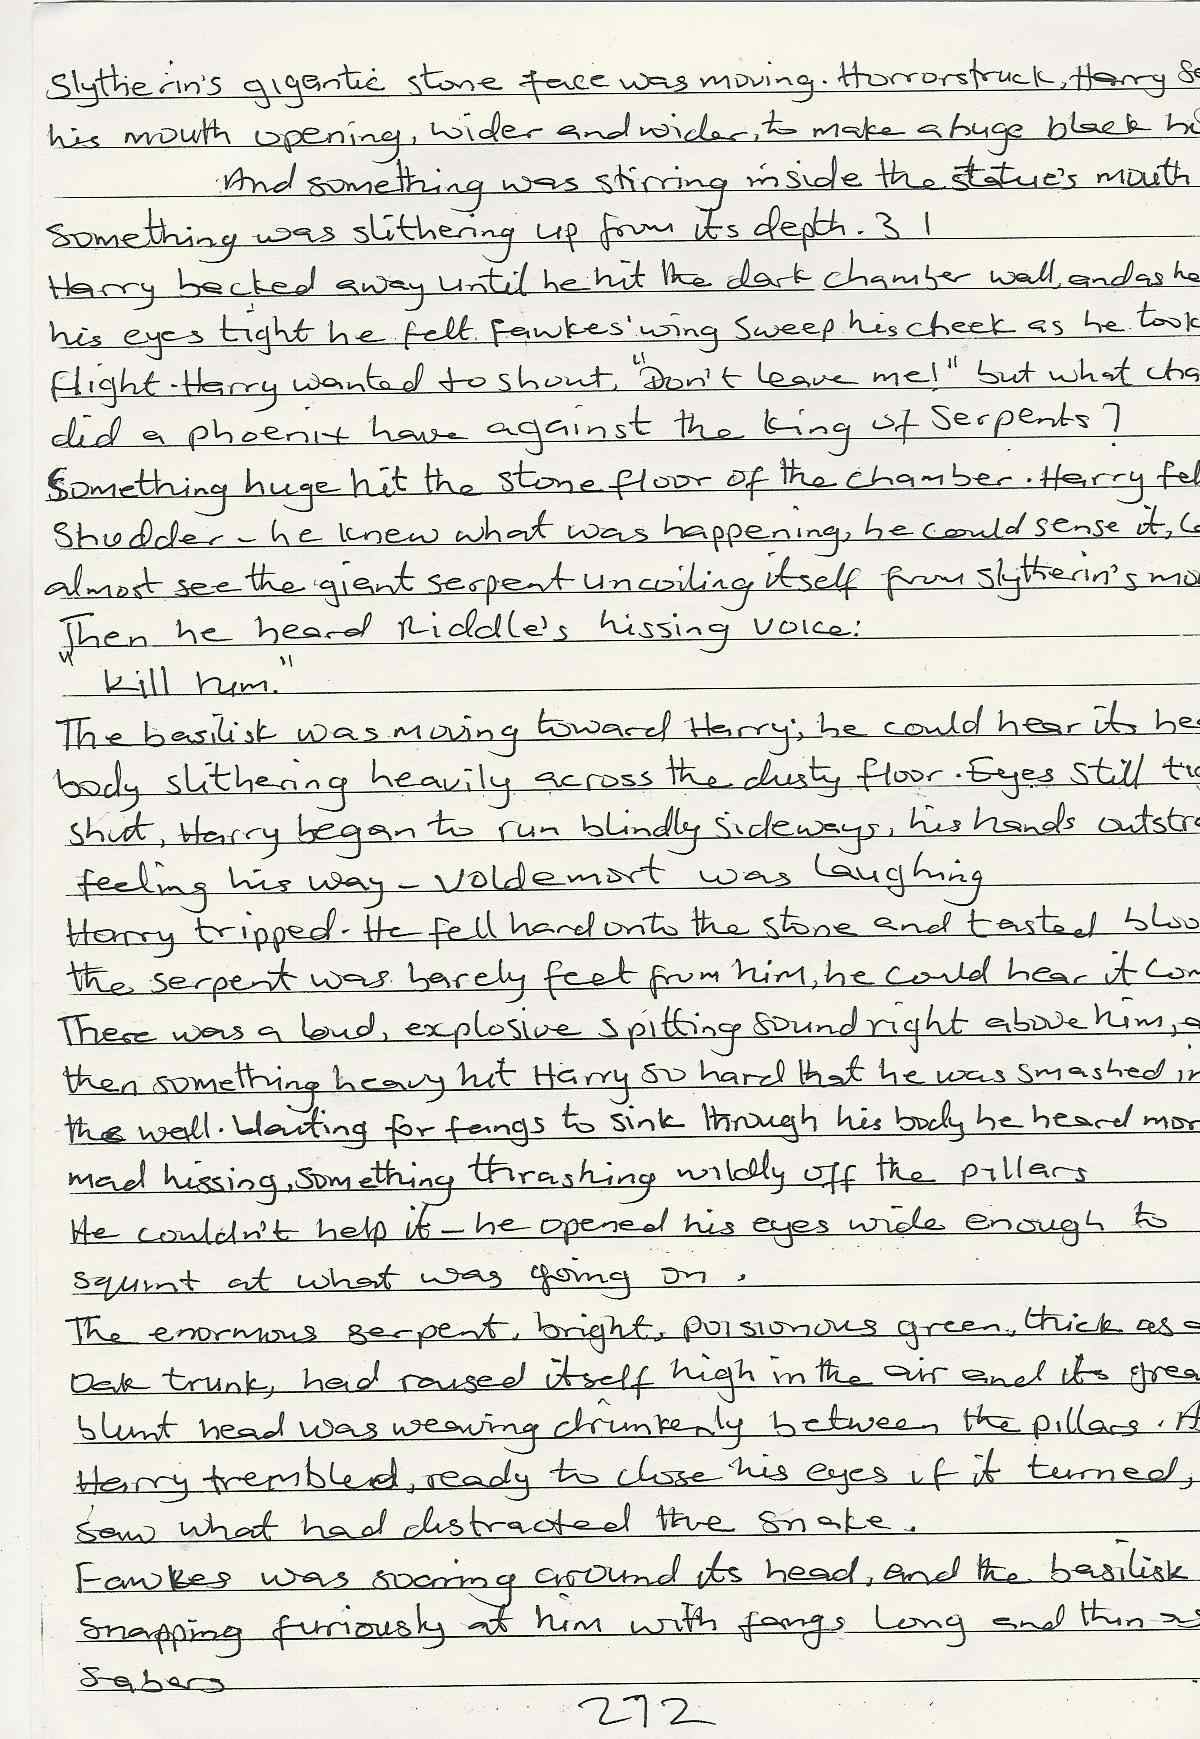 Slytherin's gigantic stone face was moving. Horrorstruck, Harry
his mouth opening, wider and wider, to make a huge black
And something was stirring inside the statue's mouth
Something was slithering up from its depth. 31
Harry backed away until he hit the dark chamber wall, and as he
his eyes tight he felt Fawkes' wing sweep his cheek as he took
flight. Harry wanted to shout, "Don't leave me!" but what cha
did a phoenix have against the king of serpents?
Something huge hit the stone floor of the chamber. Harry fel
Shudder - he knew what was happening, he could sense it,
almost see the giant serpent uncoiling itself from Slytherin's mo
Then he heard Riddle's hissing voice:
"Kill him."
The basilisk was moving toward Harry; he could hear its hea
body slithering heavily across the dusty floor. Eyes still tig
shut, Harry began to run blindly sideways, his hands outstr
feeling his way - Voldemort was laughing
Harry tripped. He fell hard onto the stone and tasted bloo
the serpent was barely feet from him, he could hear it com
There was a loud, explosive spitting sound right above him, a
then something heavy hit Harry so hard that he was smashed in
the wall. Waiting for fangs to sink through his body he heard mor
mad hissing, something thrashing wildly off the pillars
He couldn't help it - he opened his eyes wide enough to
squint at what was going on.
The enormous serpent, bright, poisionous green, thick as a
oak trunk, had raised itself high in the air and its grea
blunt head was weaving drunkenly between the pillars. A
Harry trembled, ready to close his eyes if it turned,
saw what had distracted the snake.
Fawkes was soaring around its head, and the basilisk
snapping furiously at him with fangs long and thin as
sabers
272